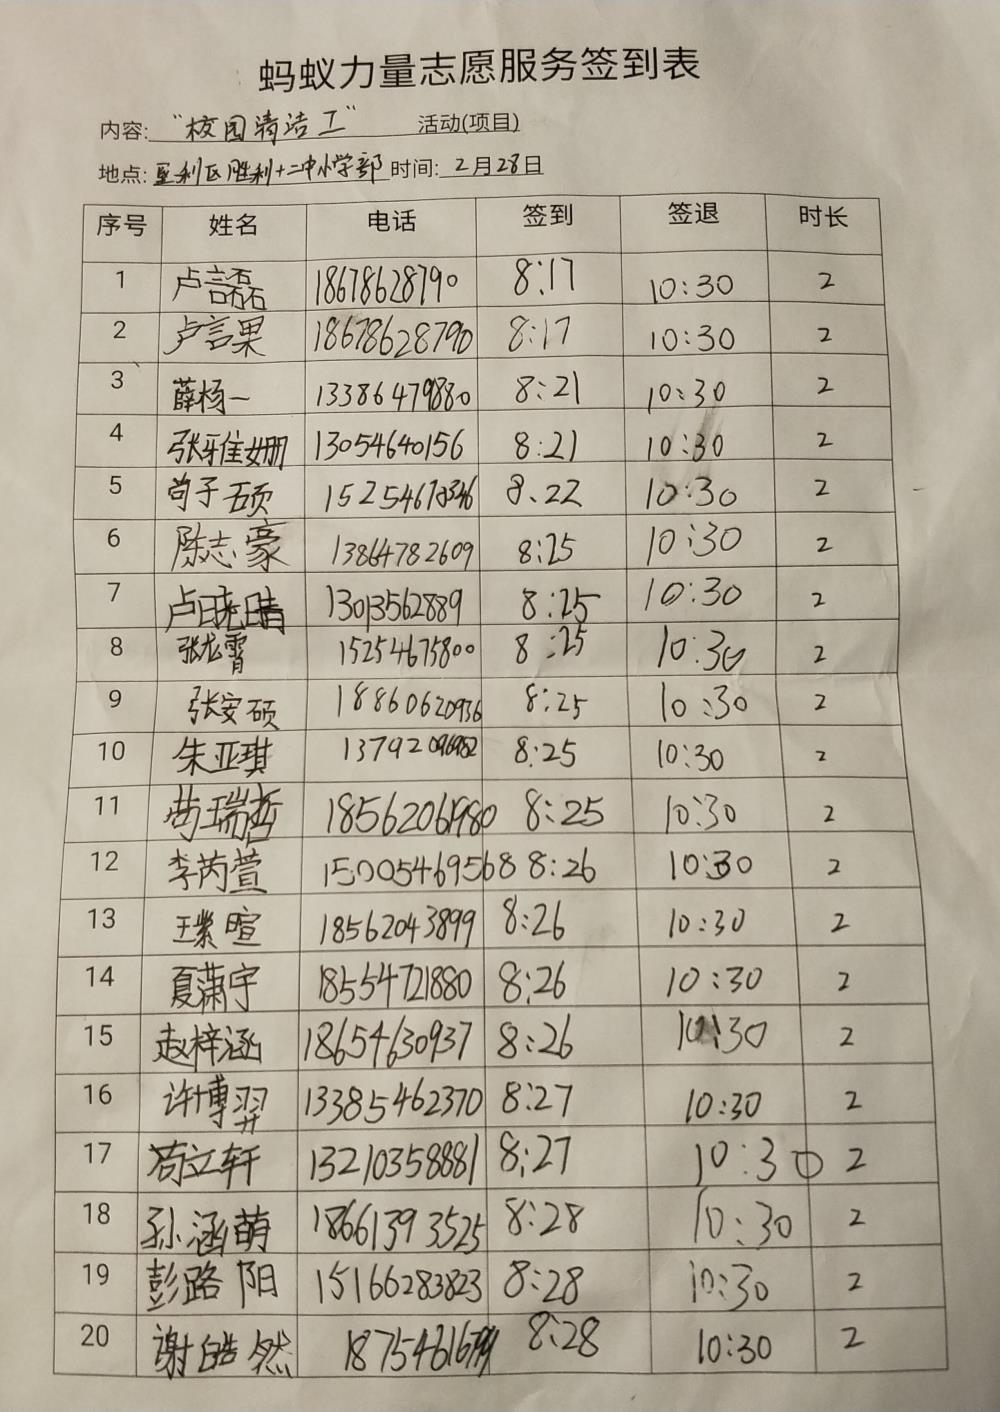 蚂蚁力量志愿服务签到表
内容: “校园清洁工” 活动(项目)
地点: 垦利区胜利十二中小学部 时间: 2月28日
序号 姓名 电话 签到 签退 时长
1 卢言磊 18678628790 8:17 10:30 2
2 卢言果 18678628790 8:17 10:30 2
3 薛杨一 13386479880 8:21 10:30 2
4 张雅姗 13054640156 8:21 10:30 2
5 苟子硕 8.22 10:30 2
6 陈志豪 13864782609 8:25 10:30 2
7 卢晓晴 13013562889 8:25 10:30 2
8 张龙霄 15254675800 8:25 10:30 2
9 张安硕 18860620936 8:25 10:30 2
10 朱亚琪 13792096982 8:25 10:30 2
11 苟瑞哲 18562061980 8:25 10:30 2
12 李芮萱 15005469568 8:26 10:30 2
13 王紫暄 18562043899 8:26 10:30 2
14 夏潇宇 18554721880 8:26 10:30 2
15 赵梓涵 18654630937 8:26 10:30 2
16 许博羿 13385462370 8:27 10:30 2
17 苟立轩 13210358881 8:27 10:30 2
18 孙涵萌 18661393525 8:28 10:30 2
19 彭路阳 15166283823 8:28 10:30 2
20 谢皓然 8:28 10:30 2